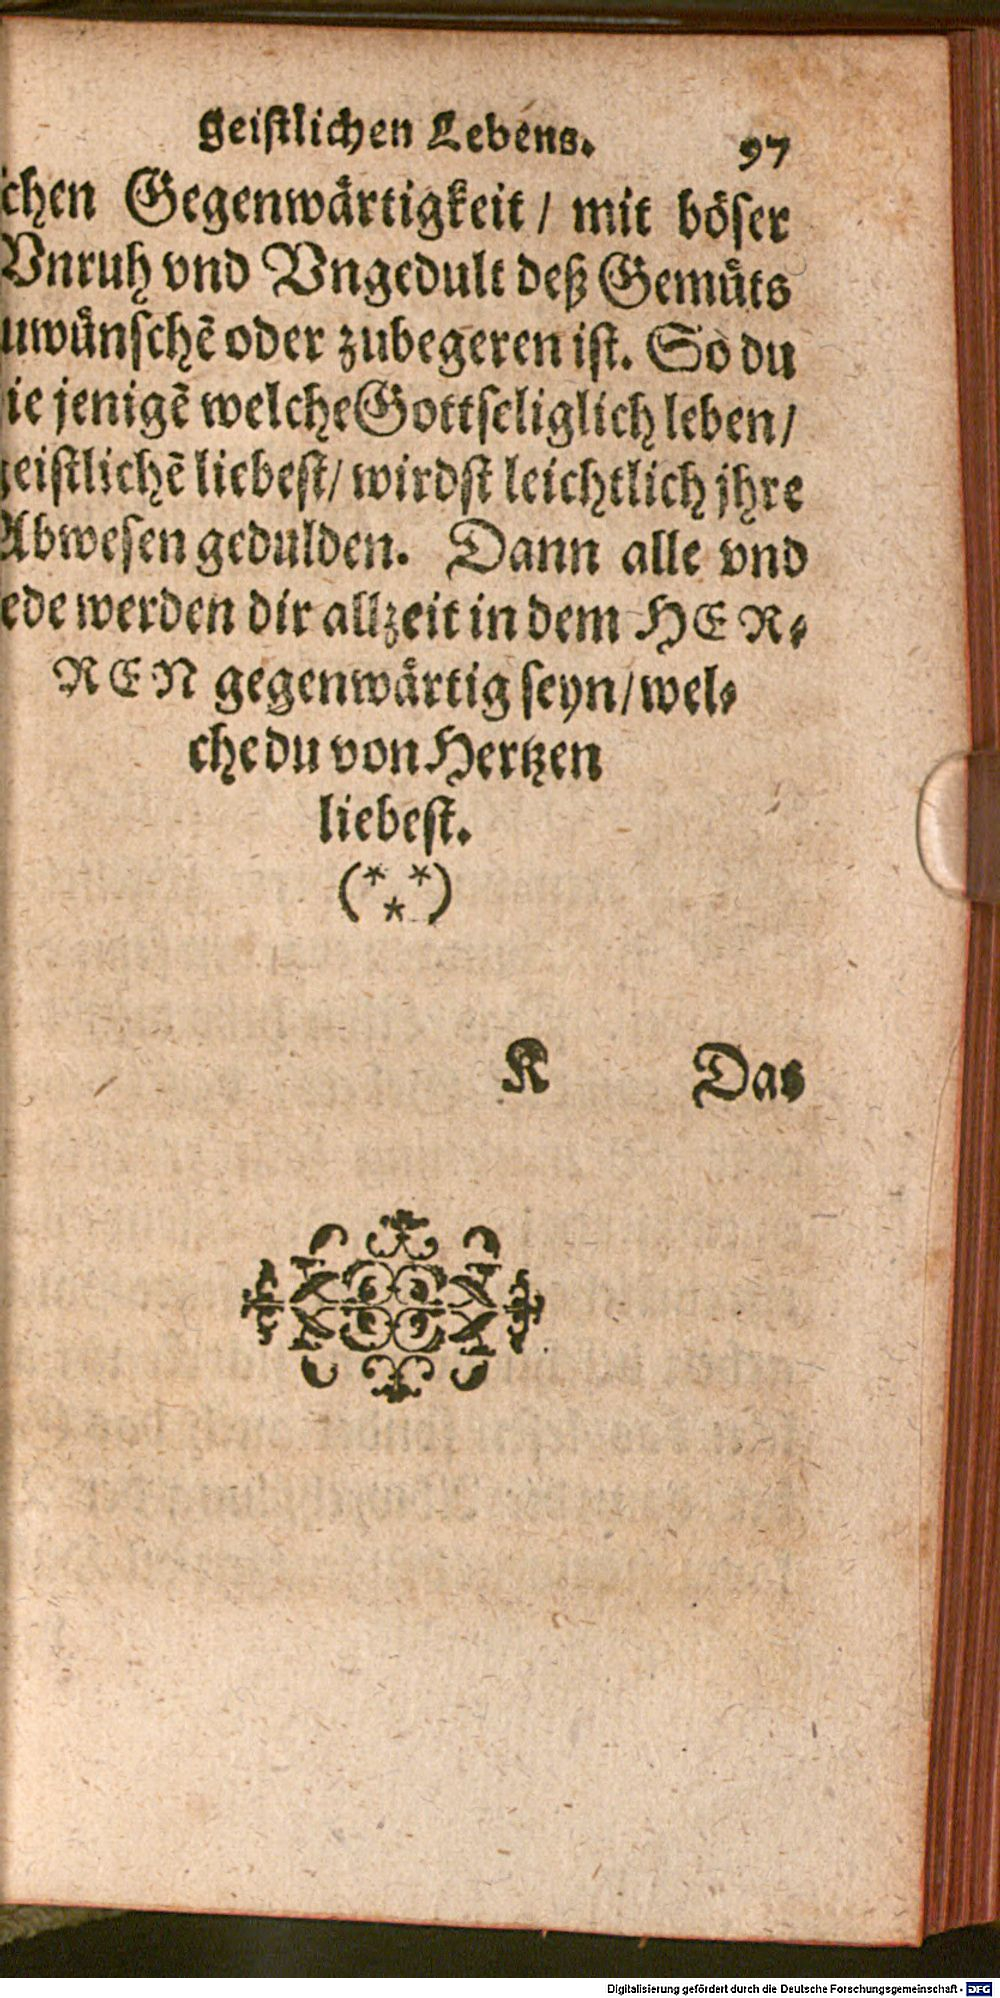 geistlichen Lebens. 97
chen Gegenwaͤrtigkeit / mit boͤser
Vnruh vnd Vngedult deß Gemuͤts
uwuͤnschẽ oder zubegeren ist. So du
ie jenigẽ welche Gottseliglich leben /
geistlichẽ liebest / wirdst leichtlich jhre
Abwesen gedulden. Dann alle vnd
ede werden dir allzeit in dem HER⸗
REN gegenwaͤrtig seyn / wel⸗
che du von Hertzen
liebest.
(* * *)
K Das
Digitalisierung gefördert durch die Deutsche Forschungsgemeinschaft - DFG